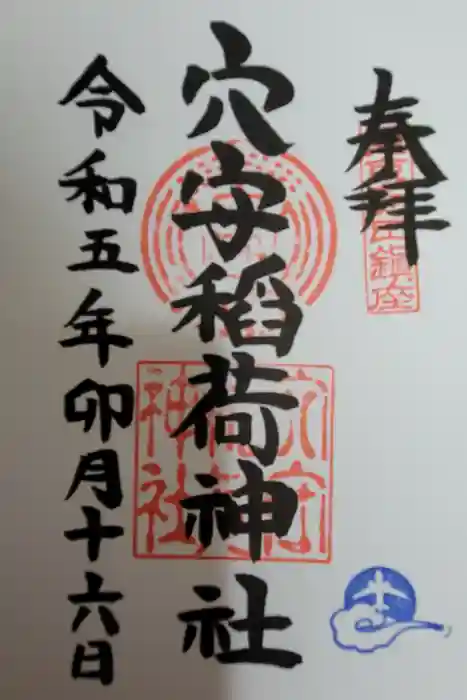 奉拝
田鎮座
穴守稲荷神社
穴守
神社
令和五年卯月十六日